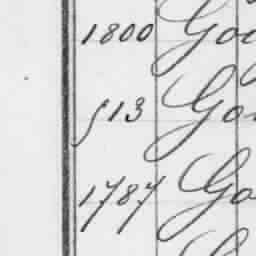 1800 Go
513 Go
1787 Go